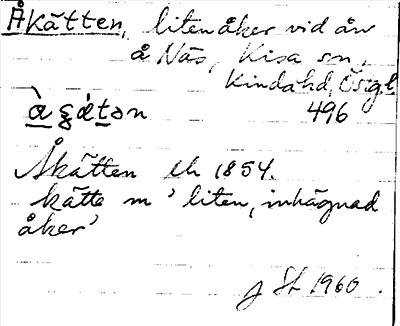 Åkätten, liten åker vid ån
å Näs, Kisa sn,
Kinda hd, Ösgl.
496
Åkätten lh 1854.
kätte m 'liten, inhägnad
åker'
1960.